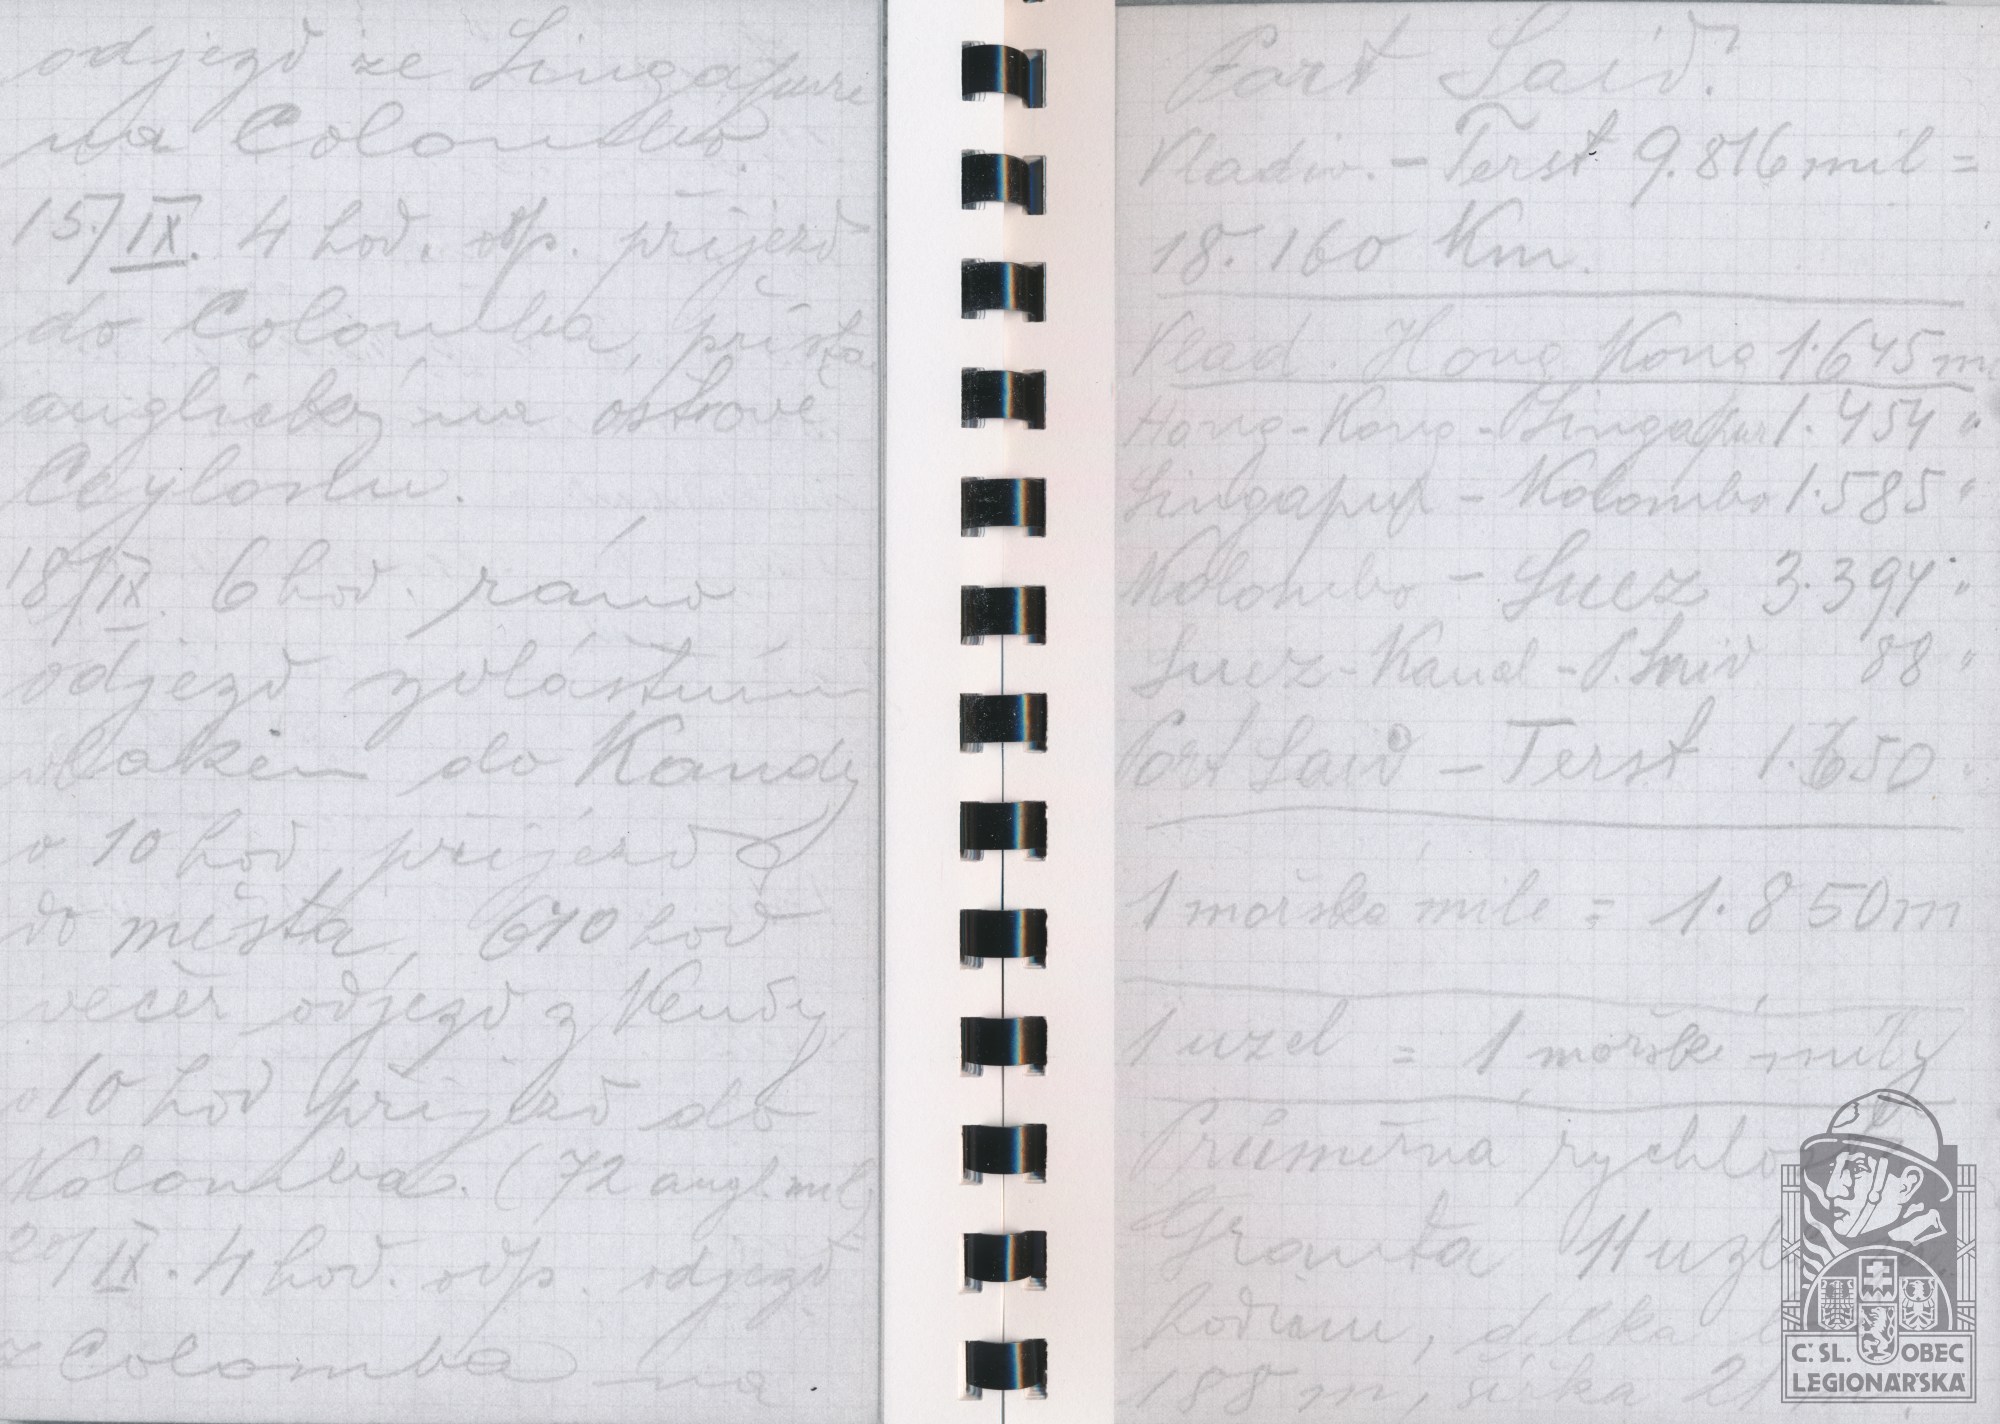 odjezd ze Singapuru
na Colombo.
15./IX. 4 hod. odp. příjezd
do Colomba, přísta
anglický na ostrově
Ceylonu.
18/IX. 6 hod. ráno
odjezd zvláštním
vlakem do Kandy
v 10 hod příjezd
do města, 6 10 hod
večer odjezd z Kendy,
v 10 hod příjezd do
Kolomba. (72 angl. mil)
20/IX. 4 hod. odp. odjezd
z Colomba na
Port Said.
Vladiv. – Terst 9.816 mil =
18.160 Km.
Vlad. Hong Kong 1.645 mi
Hong-Kong-Singapur 1.454 "
Singapur – Kolombo 1.585 "
Kolombo – Suez 3.394 "
Suez-Kanal-P. Said 88 "
Port Said – Terst 1.650 "
1 mořská míle = 1.850 m
1 uzel = 1 mořské míly
Průměrná rychlost
Granta 11 uzlů
hodinu, délka
188 m, šířka 21
Č. SL. OBEC
LEGIONÁŘSKÁ